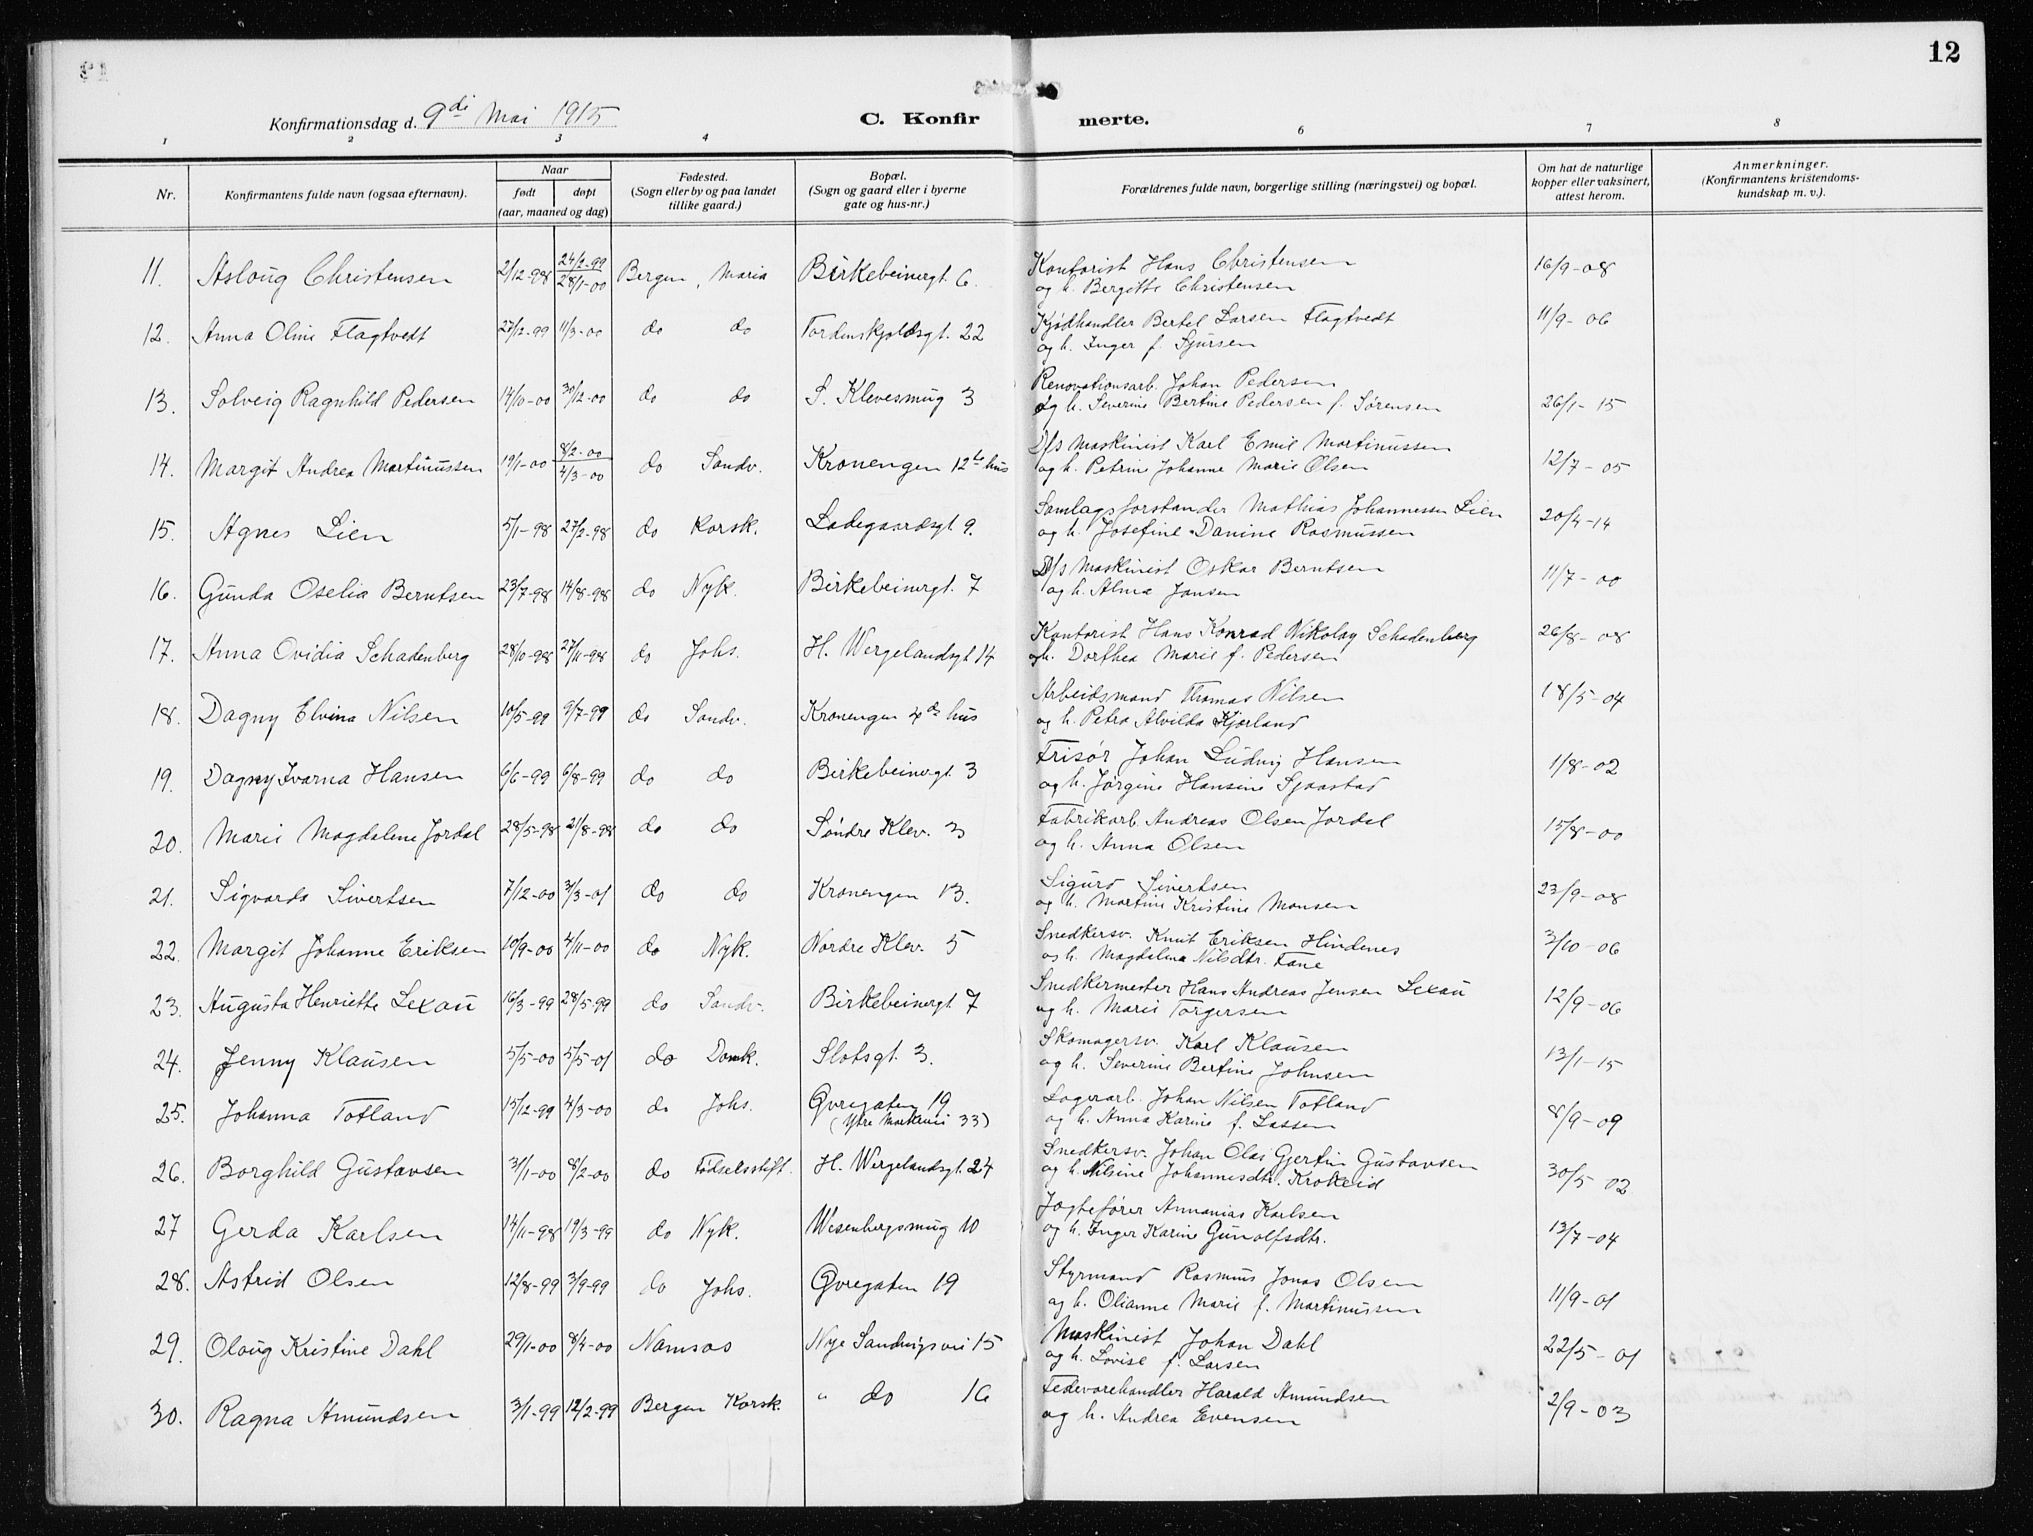 12
Konfirmationsdag d. 9di Mai 1915
C. Konfir merte.
1 2 3 4 6 7 8
Nr. Konfirmantens fulde navn (ogsaa efternavn). Naar født døpt (aar, maaned og dag) Fødested. (Sogn eller by og paa landet tillike gaard.) Bopæl. (Sogn og gaard eller i byerne gate og hus-nr.) Forældrenes fulde navn, borgerlige stilling (næringsvei) og bopæl. Om hat de naturlige kopper eller vaksinert, attest herom. Anmerkninger. (Konfirmantens kristendoms-kundskap m. v.).
11. Asloug Christensen 2/12-98 24/2-99 28/1-00 Bergen, Maria Birkebeinergt. 6. Kontorist Hans Christensen 16/9-08
og h. Bergitte Christensen
12. Anna Oline Flagtvedt 27/2-99 11/3-00 do do Tordenskjoldsgt. 22 Kjødhandler Bertel Larsen Flagtvedt 11/9-06
og h. Inger f. Sjursen
13. Solveig Ragnhild Pedersen 14/10-00 30/12-00 do do S. Klevesmug 3 Renovationsarb. Johan Pedersen
og h. Severine Bertine Pedersen f. Sørensen 26/1-15
14. Margit Andrea Martinussen 19/1-00 8/2-00 4/3-00 do Sandv. Kronengen 12te hus D/s Maskinist Karl Emil Martinussen
og h. Petrine Johanne Marie Olsen 12/7-05
15. Agnes Lien 5/1-98 27/2-98 do Korsk. Ladegaardsgt 9. Samlagsforstander Mathias Johannessen Lien
og h. Josefine Danine Rasmussen 20/4-14
16. Gunda Oselia Berntsen 23/7-98 14/8-98 do Nyk. Birkebeinergt. 7 D/s Maskinist Oskar Berntsen
og h. Alma Jansen 11/7-00
17. Anna Ovidia Schadenberg 28/10-98 27/11-98 do Johs. H. Wergelandsgt 14 Kontorist Hans Konrad Nikolay Schadenberg 26/8-08
og h. Dorthea Marie f. Pedersen
18. Dagny Elvina Nilsen 10/5-99 9/7-99 do Sandv. Kronengen 4de hus Arbeidsmand Thomas Nilsen 18/5-04
og h. Petra Alvilda Kjærland
19. Dagny Ivarna Hansen 6/6-99 6/8-99 do do Birkebeinergt. 3 Frisør Johan Ludvig Hansen 1/8-02
og h. Jørgine Hansine Sjaastad
20. Marie Magdalene Jordal 28/5-98 21/8-98 do do Søndre Klev. 3 Fabrikarb. Andreas Olsen Jordal 15/8-00
og h. Anna Olsen
21. Sigvarda Sivertsen 7/12-00 3/3-01 do do Kronengen 13. Sigurd Sivertsen 23/9-08
og h. Martine Kristine Monsen
22. Margit Johanne Eriksen 10/9-00 4/11-00 do Nyk. Nordre Klev. 5 Snedkersv. Knut Eriksen Hindenes 3/10-06
og h. Magdalena Nilsdtr. Fane
23. Augusta Henriette Lexau 16/3-99 28/5-99 do Sandv. Birkebeinergt 7 Snedkermester Hans Andreas Jensen Lexau 12/9-06
og h. Marie Torgersen
24. Jenny Klausen 5/5-00 5/5-01 do Domk. Slotsgt. 3. Skomagersv. Karl Klausen 13/1-15
og h. Severine Bertine Johnsen
25. Johanna Totland 15/12-99 4/3-00 do Johs. Øvregaten 19 Lagerarb. Johan Nilsen Totland
(Ytre Markevei 33) og h. Anna Karine f. Lassen 8/9-09
26. Borghild Gustavsen 31/1-00 8/2-00 do Fødselsstift. H. Wergelandsgt. 24 Snedkersv. Johan Olai Gjertin Gustavsen
og h. Nilsine Johannesdtr. Krokeid 30/5-02
27 Gerda Karlsen 14/11-98 19/3-99 do Nyk. Wesenbergsmug 10 Jagtefører Annanias Karlsen
og h. Inger Karine Gunolfsdtr. 13/7-04
28. Astrid Olsen 12/8-99 3/9-99 do Johs. Øvregaten 19 Styrmand Rasmus Jonas Olsen
og h. Olianne Marie f. Martinussen 11/9-01
29. Oloug Kristine Dahl 29/1-00 8/4-00 Namsos Nye Sandvigsvei 15 Maskinist Johan Dahl 22/5-01
og h. Lovise f. Larsen
30. Ragna Amundsen 3/1-99 12/2-99 Bergen Korsk. " do 16 Fedevarehandler Harald Amundsen 2/9-03
og h. Andrea Evensen